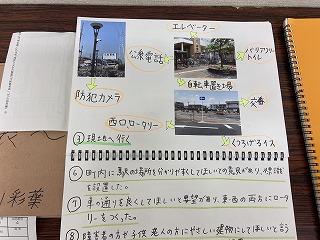 エレベーター
公衆電話
バリアフリー
トイレ
自転車置き場
防犯カメラ
交番
西口ロータリー
⑤現地へ行く
くつろげるイス
⑥町内に駅の場所を分かりやすくしてほいしの意見があり、標識
を設置した。
⑦車の通りを良くしてほしいと要望があり、東西の両方にロータ
リーをつくった。
⑧障害者の方や子供、老人の方にやさしい建物にしてほしいと言う
彩葉